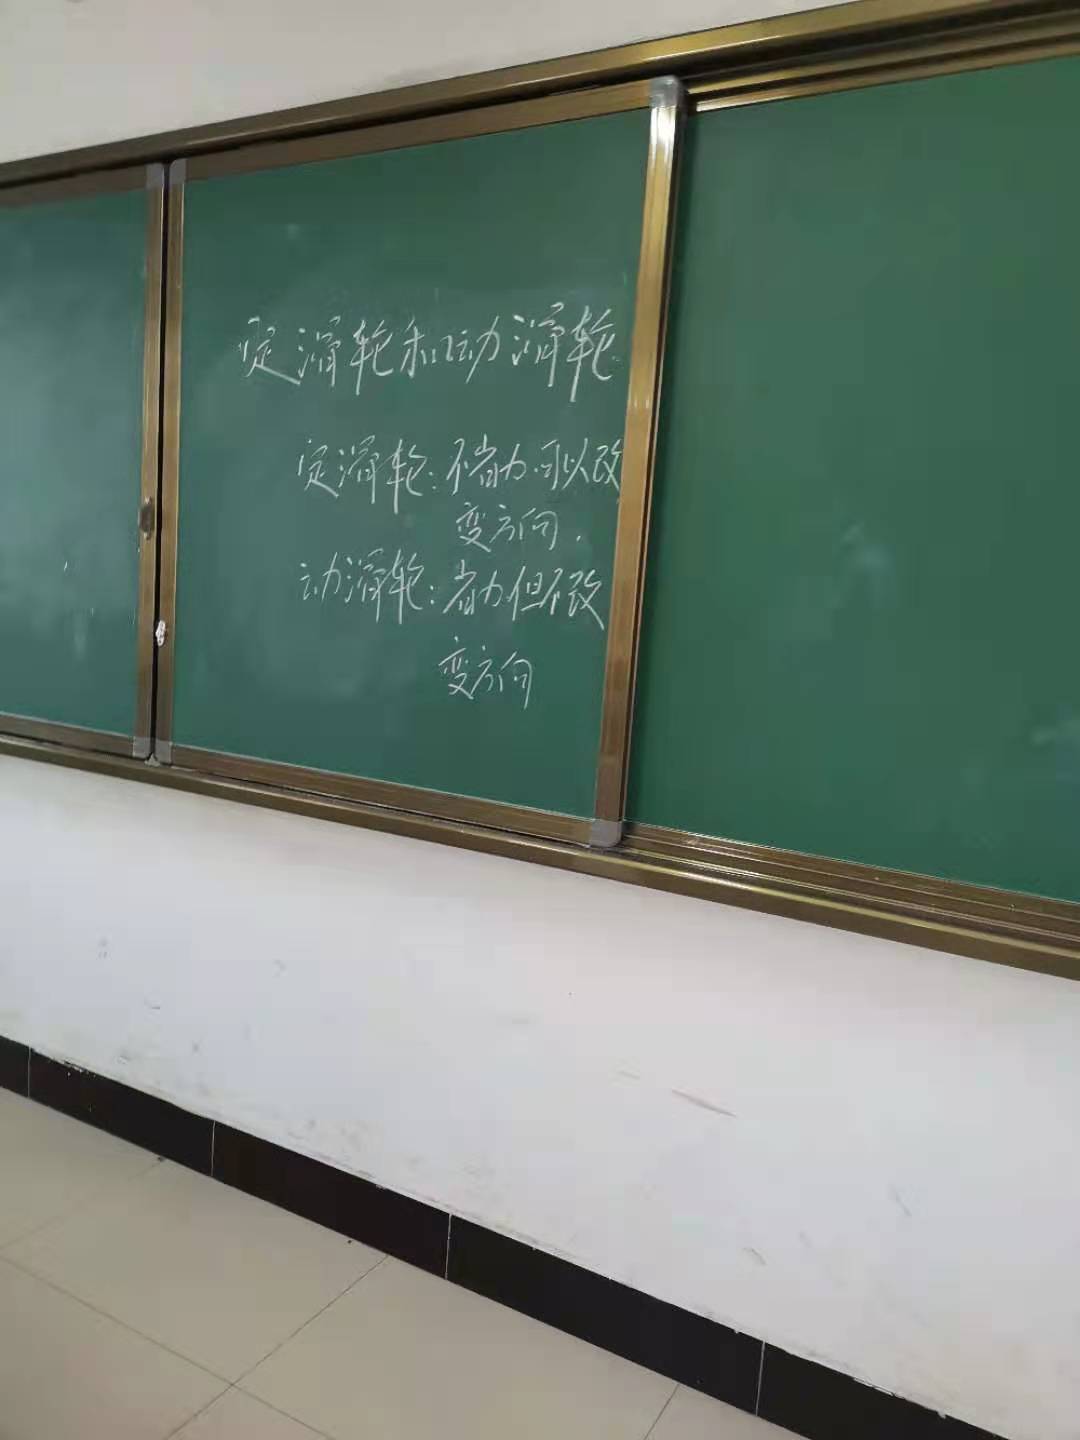 定滑轮和动滑轮
定滑轮:不省力.可以改
变方向.
动滑轮:省力但不改
变方向